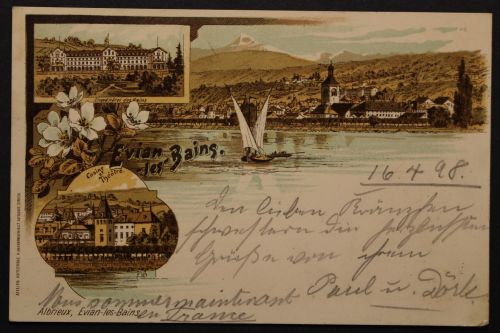 Evian
les Bains.
Casino
Théâtre.
16.4.98.
Den lieben Kränzchen
schwestern die
Grüße von ihrem
Paul u. Dörle
Nous sommes maintenant
en France
Albrieux, Evian-les-Bains